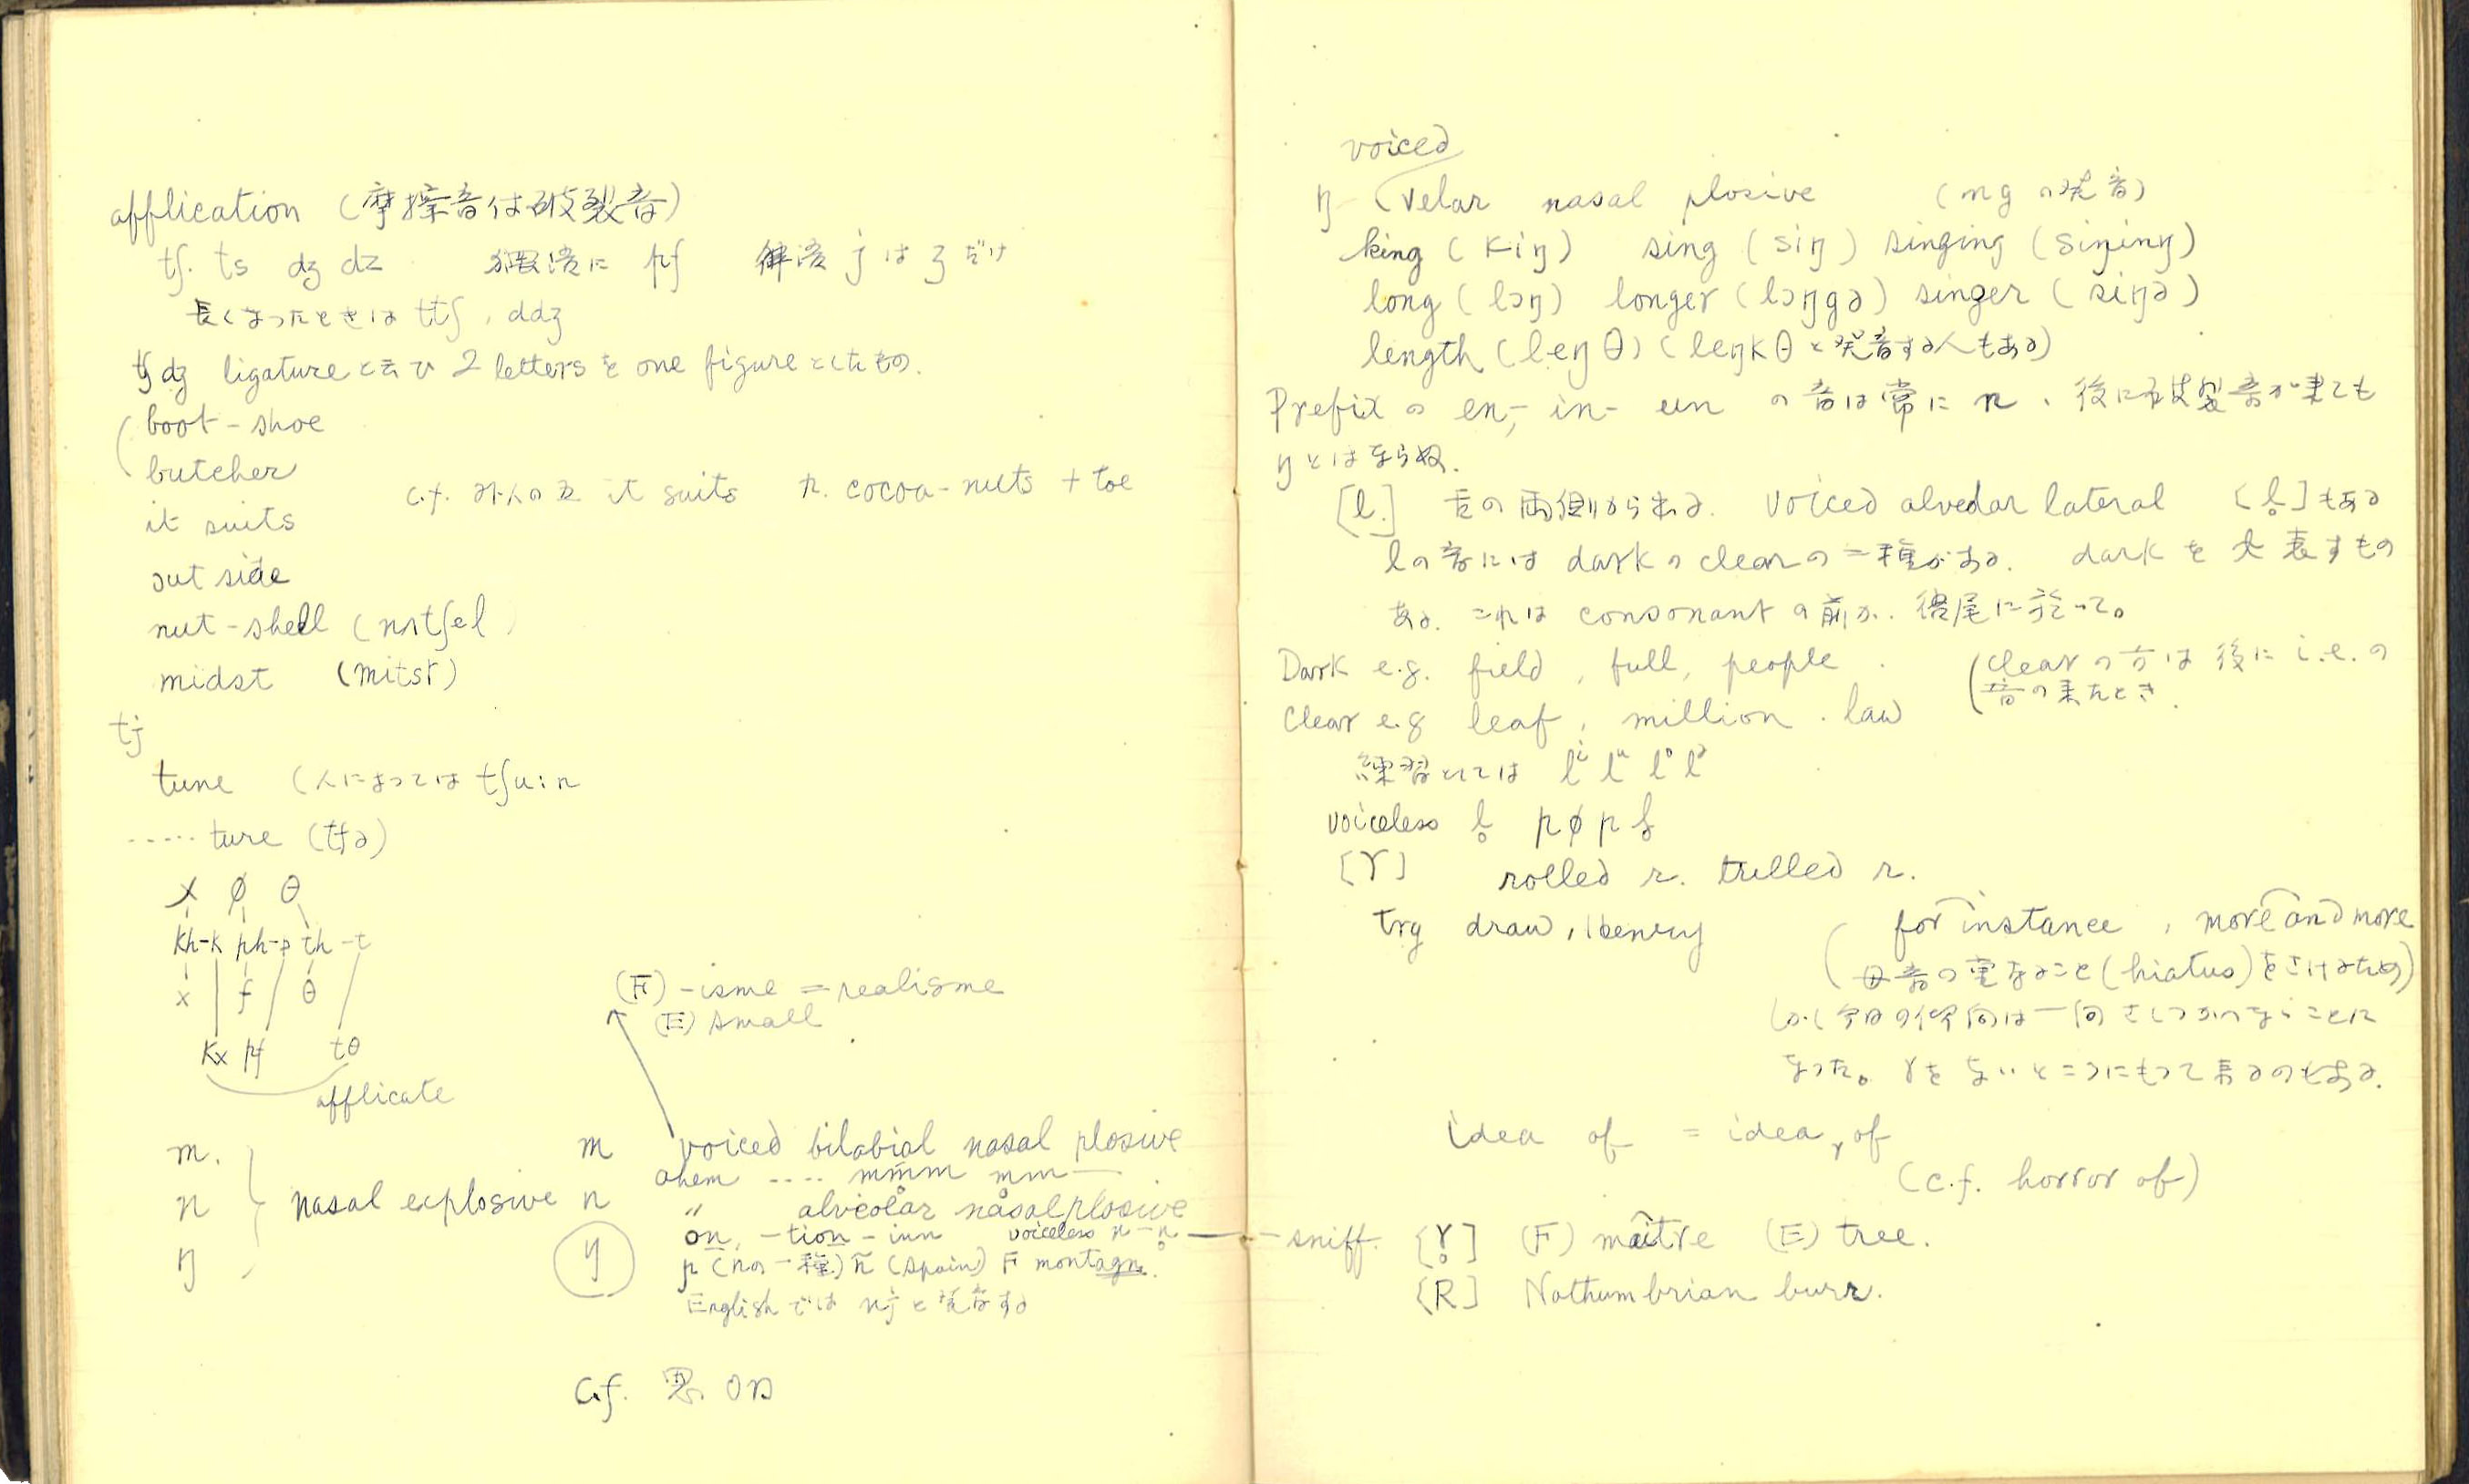 afflication (摩擦音付破裂音)
tʃ. ts dʒ dz 独逸語に pf 佛語 j は ʒ だけ
長くなったときは ttʃ, ddʒ
ʧ ʤ ligature と云ひ 2 letters を one figure としたもの.
boot-shoe
butcher
it suits
c.f. it suits n. cocoa-nuts + toe
out side
nut-shell (nʌtʃel
midst (mitst)
tj
tune (人によっては tʃu:n
..... ture (tʃə)
χ ϕ θ
kh-k ph-p th-t
x f θ
kx pf tθ
afflicate
(F) -isme = realisme
(E) small
m.
n
ŋ
nasal explosive
m voiced bilabial nasal plosive
ahem .... mm̥m mm
n 〃 alveolar nasal plosive
on, -tion -inn voiceless n-n̥ — sniff.
ɲ (nの一種) ñ (Spain) F montagne.
English では nj と発音する
c.f. 恩 on
voiced
ŋ (velar nasal plosive (ng の発音)
king (kiŋ) sing (siŋ) singing (siŋiŋ)
long (lɔŋ) longer (lɔŋgə) singer (siŋə)
length (leŋθ) (leŋkθ と発音する人もある)
Prefix の en-, in- un の音は常に n. 後に破裂音が来ても
ŋ とはならぬ.
[l.] 舌の両側から出る. voiced alveolar lateral [l̥] もある
l の音には dark の clear の二種がある. dark を代表すもの
ある. これは consonant の前か. 後尾に於いて。
Dark e.g. field, full, people.
(clear の方は後に i.e. の
音の来たとき.
Clear e.g leaf, million. law
練習としては lⁱ lᵘ lᵒ lᵊ
voiceless l̥ pϕpf
[r] rolled r. trilled r.
try draw, Henry
(for instance, more and more
母音の重なること (hiatus) をさけるため)
しかし今日の傾向は一向さしつかへないことに
なった。 r をないところにもって来るのもある.
idea of = idea r of
(c.f. horror of)
[r̥] (F) maître (E) tree.
[R] Nothumbrian burr.